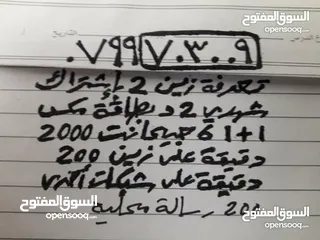 السوق المفتوح
opensooq.com
٠٧٩٩ ٧٠٣٠٠٩
تعرفة زين 2 إشتراك
شهري 2 د بطاقة مكس
1+1 6 جيجا نت 2000
دقيقة على زين 200
دقيقة على شبكات أخرى
200 رسالة محلية
السوق المفتوح
opensooq.com
السوق المفتوح
opensooq.com